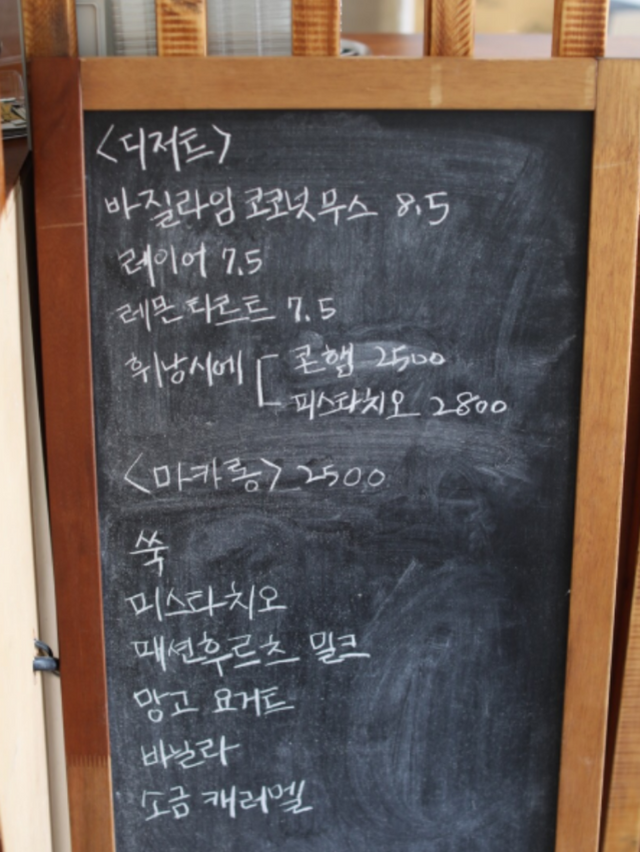 <디저트>
바질라임 코코넛 무스 8.5
레이어 7.5
레몬타르트 7.5
휘낭시에 [ 콘햄 2500
피스타치오 2800
<마카롱> 2500
쑥
피스타치오
패션후르츠 밀크
망고 요거트
바닐라
소금 캐러멜